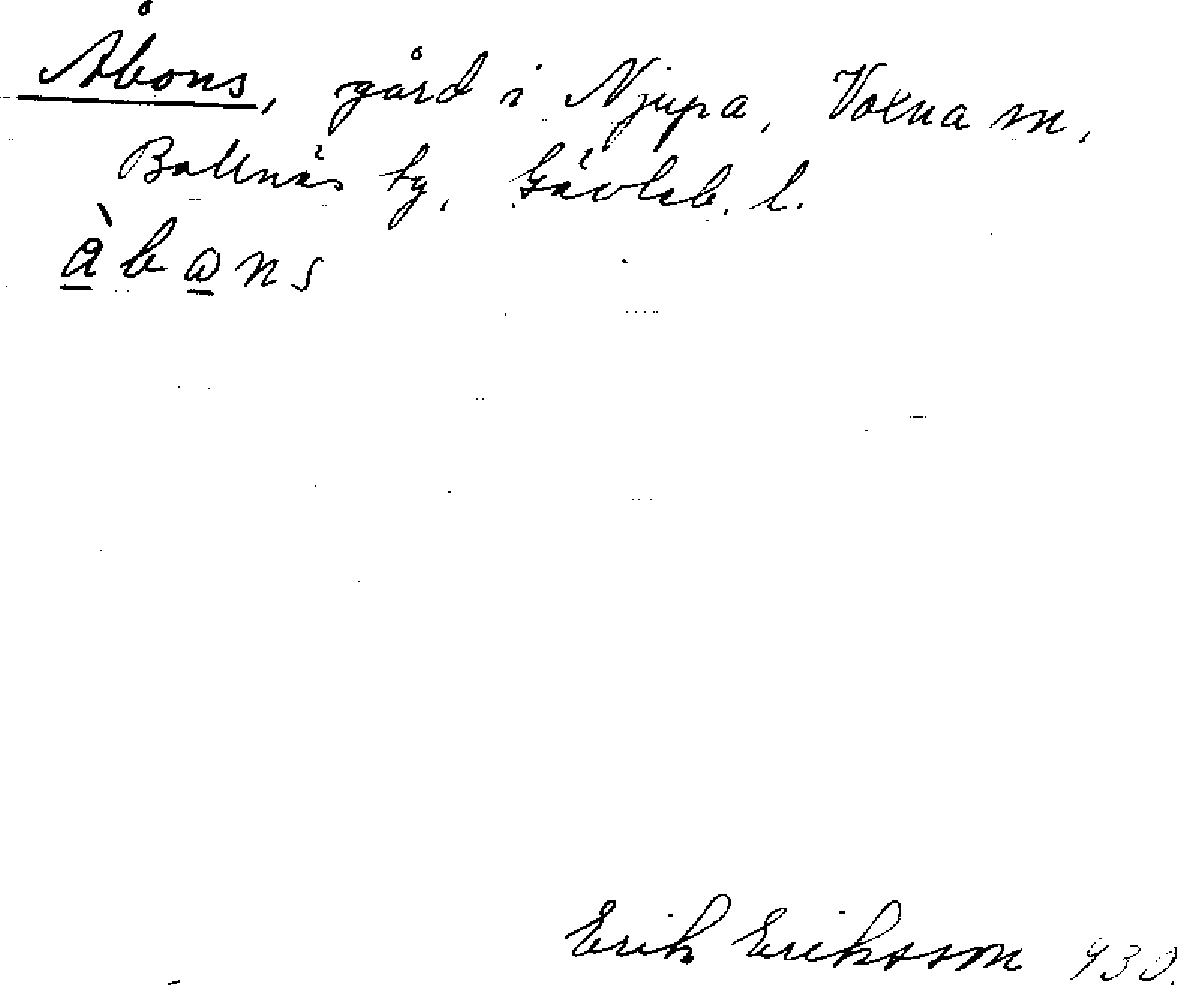 Åbons, gård i Njupa, Voxna sn,
Bollnäs tg, Gävleb. l.
àbans
Erik Eriksson 930.